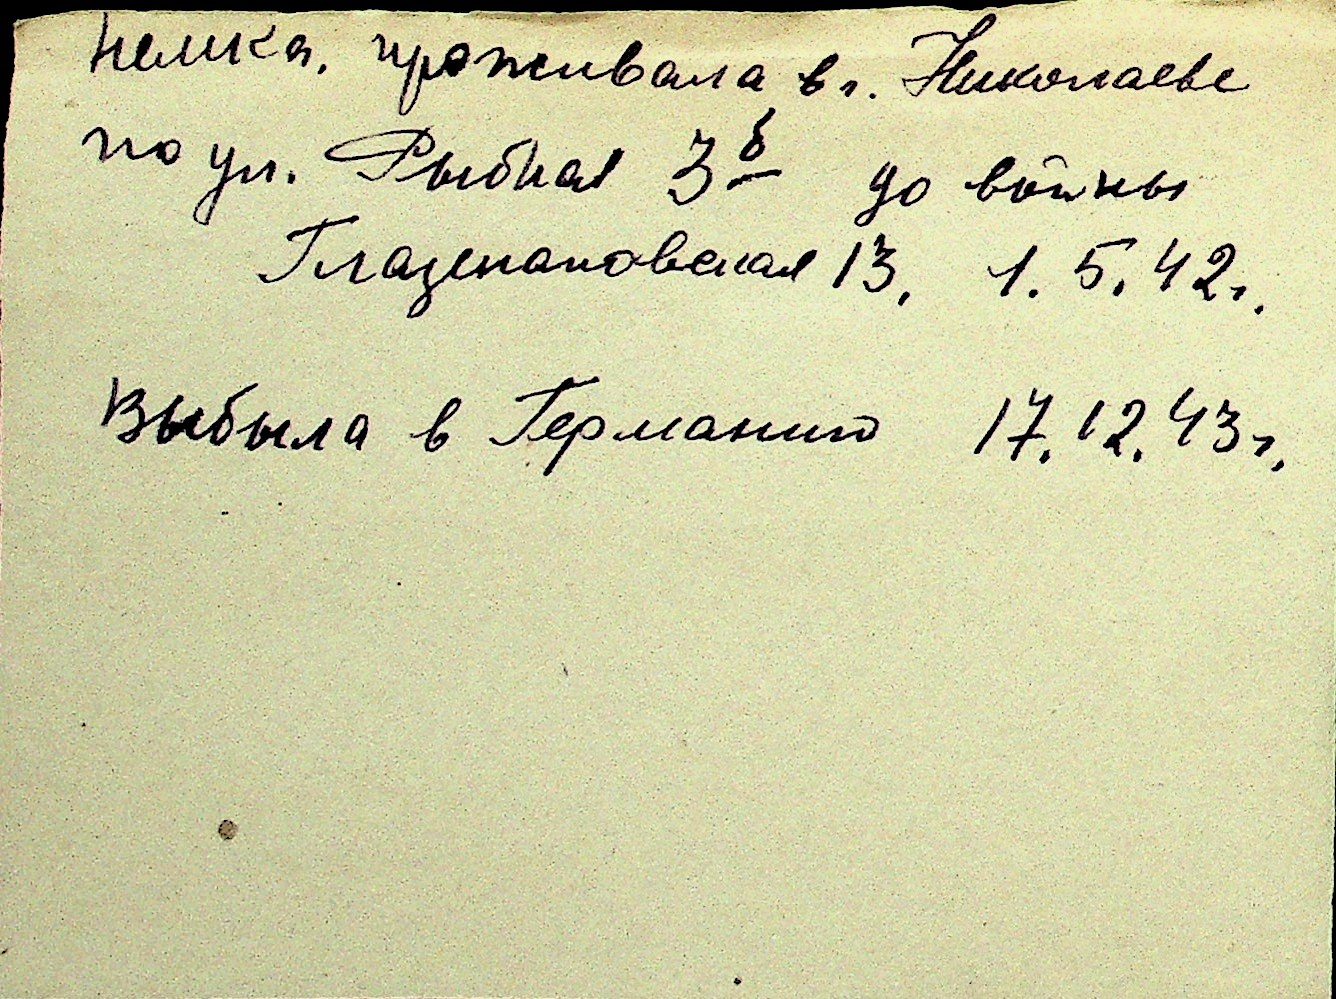 немка, проживала в г. Николаеве
по ул. Рыбная 3б до войны
Глазенаповская 13. 1.5.42г.
Выбыла в Германию 17.12.43г.